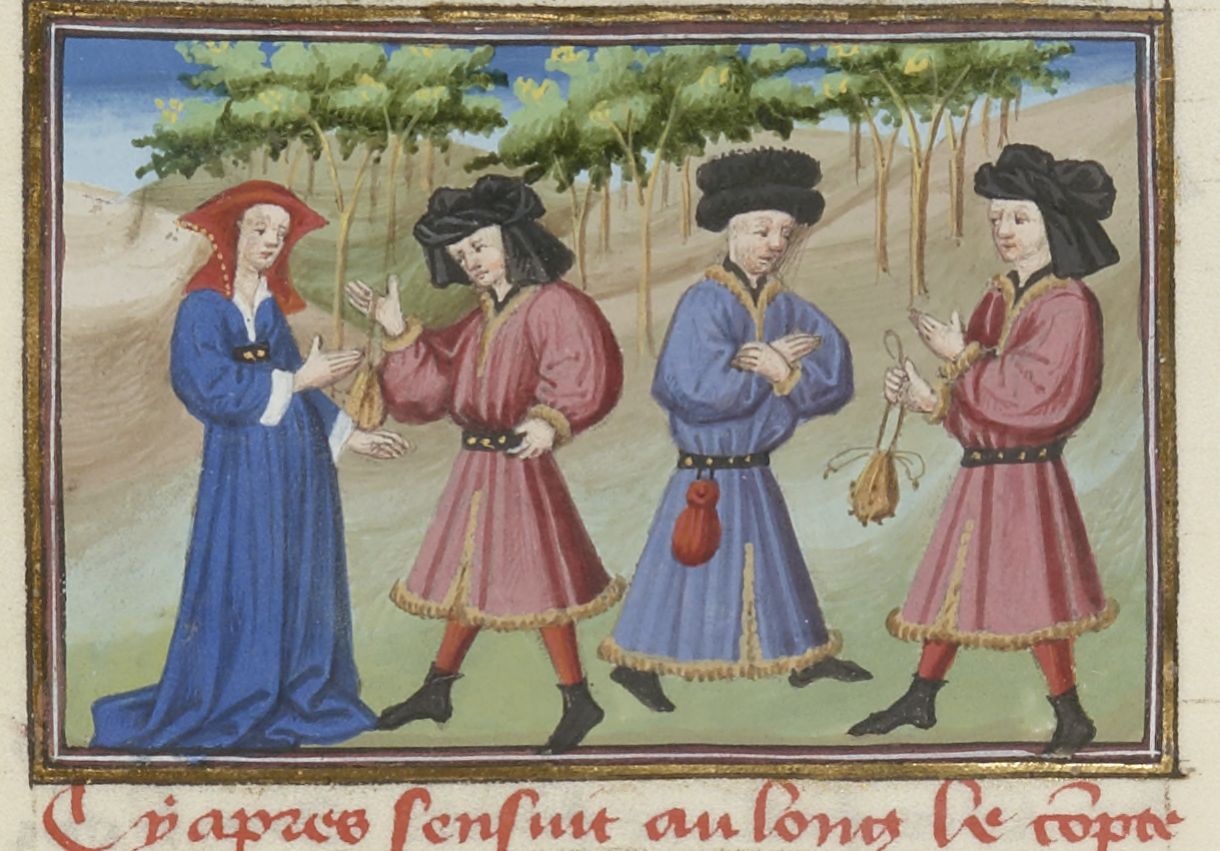 Cy apres sensuit au long le cõpte